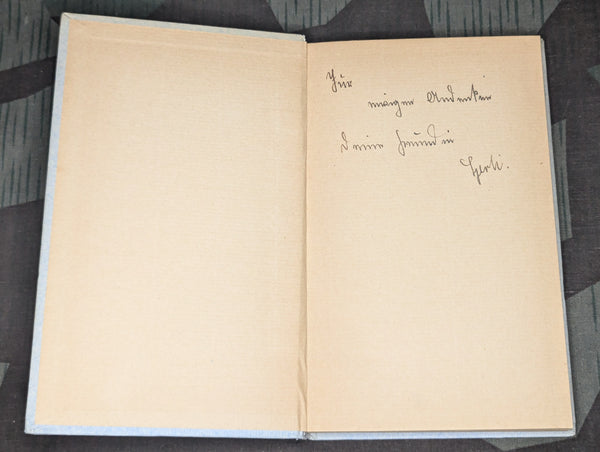 Zur
ewigen Andenken
Deine Freundin